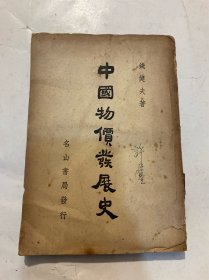 錢健夫著
中國物價發展史
名山書局發行